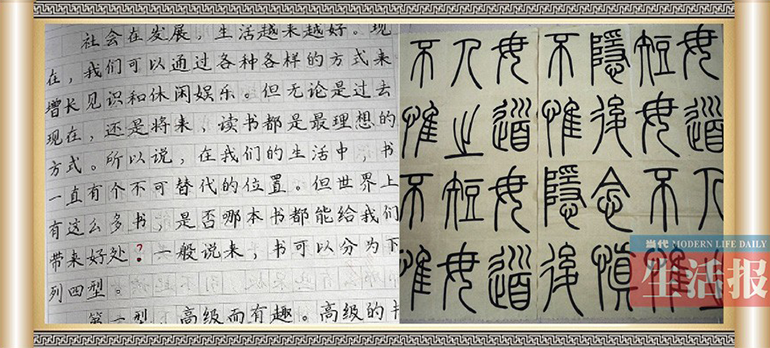 社会在发展，生活越来越好。现
在，我们可以通过各种各样的方式来
增长见识和休闲娱乐。但无论是过去
现在，还是将来，读书都是最理想的
方式。所以说，在我们的生活中，书
一直有个不可替代的位置。但世界上
有这么多书，是否哪本书都能给我们
带来好处？一般说来，书可以分为下
列四型。
第一型，高级而有趣。高级的书
毋道人之
短毋不惟
隱後念慎
不惟隱後
毋道毋道
人之短毋
不惟不惟
当代 MODERN LIFE DAILY
生活报